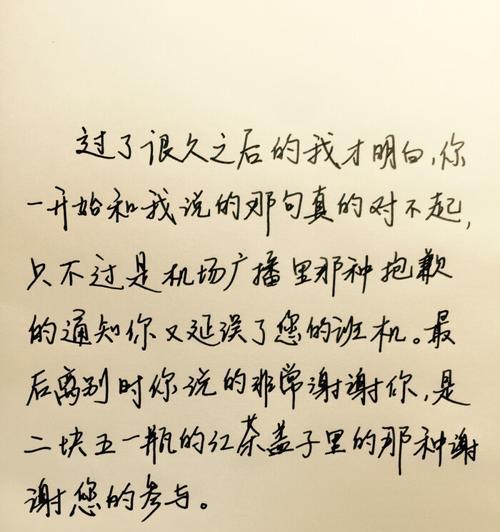 过了很久之后的我才明白,你
一开始和我说的那句真的对不起,
只不过是机场广播里那种抱歉
的通知你又延误了您的班机。最
后离别时你说的非常谢谢你,是
二块五一瓶的红茶盖子里的那种谢
谢您的参与。